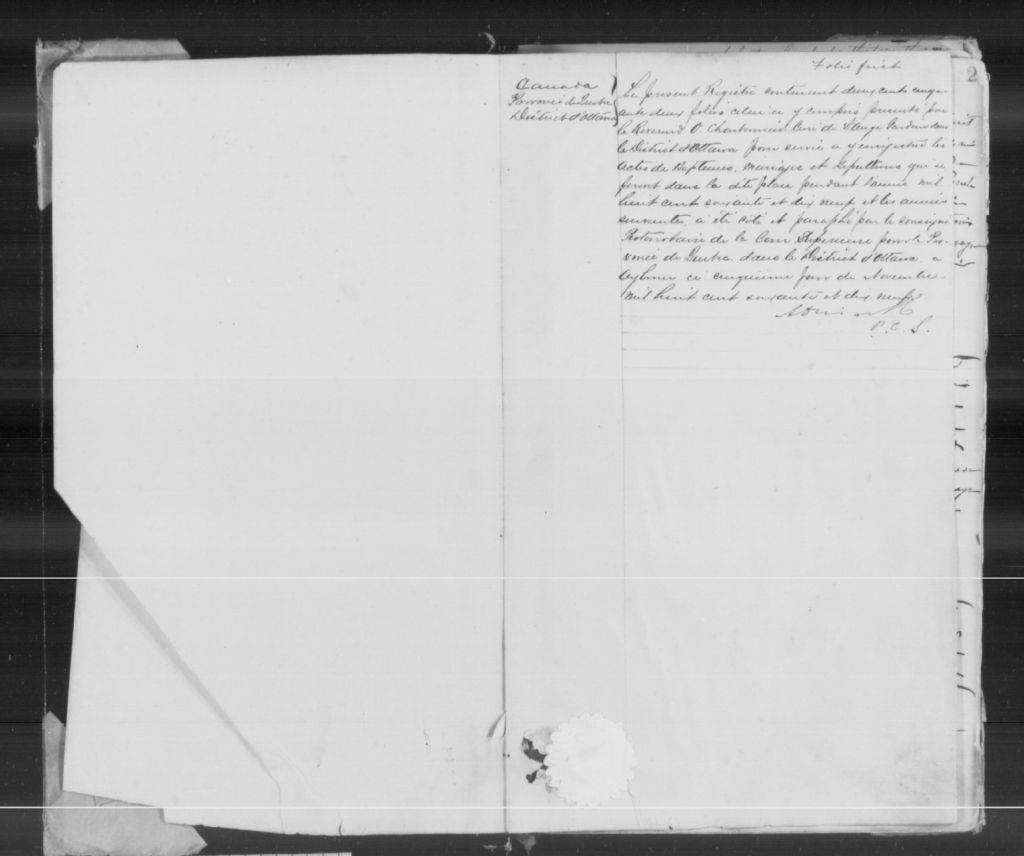 Folio first
2
Canada
Province de Quebec
District d'Ottawa
Le present Registre contenant deux cents cinqu-
ante deux folios celui ci y compris presenté par
le Reverend O. Charbonnier Curé de L'Ange Gardien dans
le District d'Ottawa pour servir a y enrégistrer les
Actes de Baptemes, mariages et Sepultures qui se
feront dans la dite place pendant l'année mil
huit cent soixante et dix neuf et les années
suivantes, a été coté et paraphé par le soussigné
Protonotaire de la Cour Superieure pour la Pro-
vince de Quebec dans le District d'Ottawa a
Aylmer ce cinquieme jour de Novembre
mil huit cent soixante et dix neuf
P. C. S.